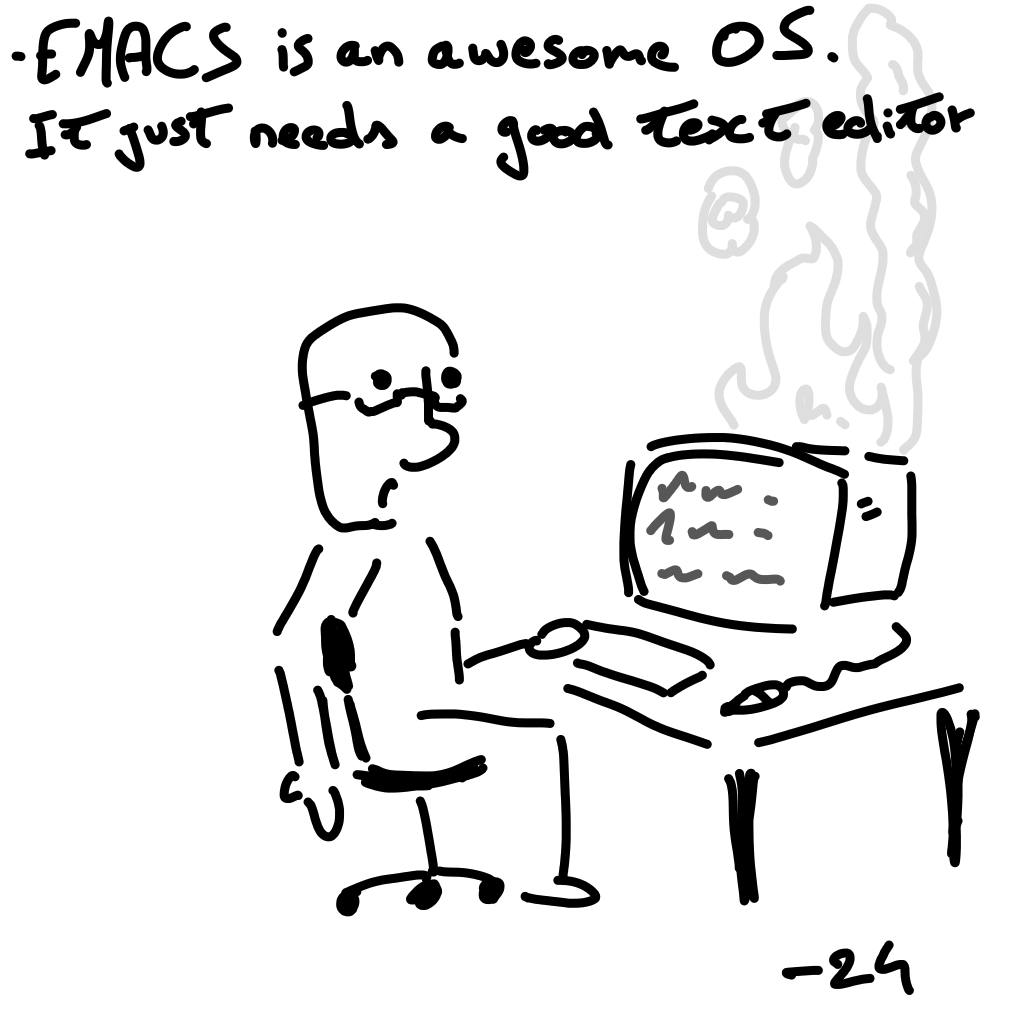 - EMACS is an awesome OS.
It just needs a good text editor
-24